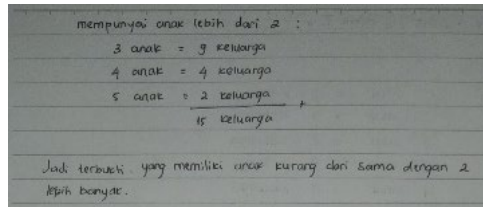 mempunyai anak lebih dari 2 :
3 anak = 9 keluarga
4 anak = 4 keluarga
5 anak = 2 keluarga +
15 keluarga
Jadi terbukti yang memiliki anak kurang dari sama dengan 2
lebih banyak.